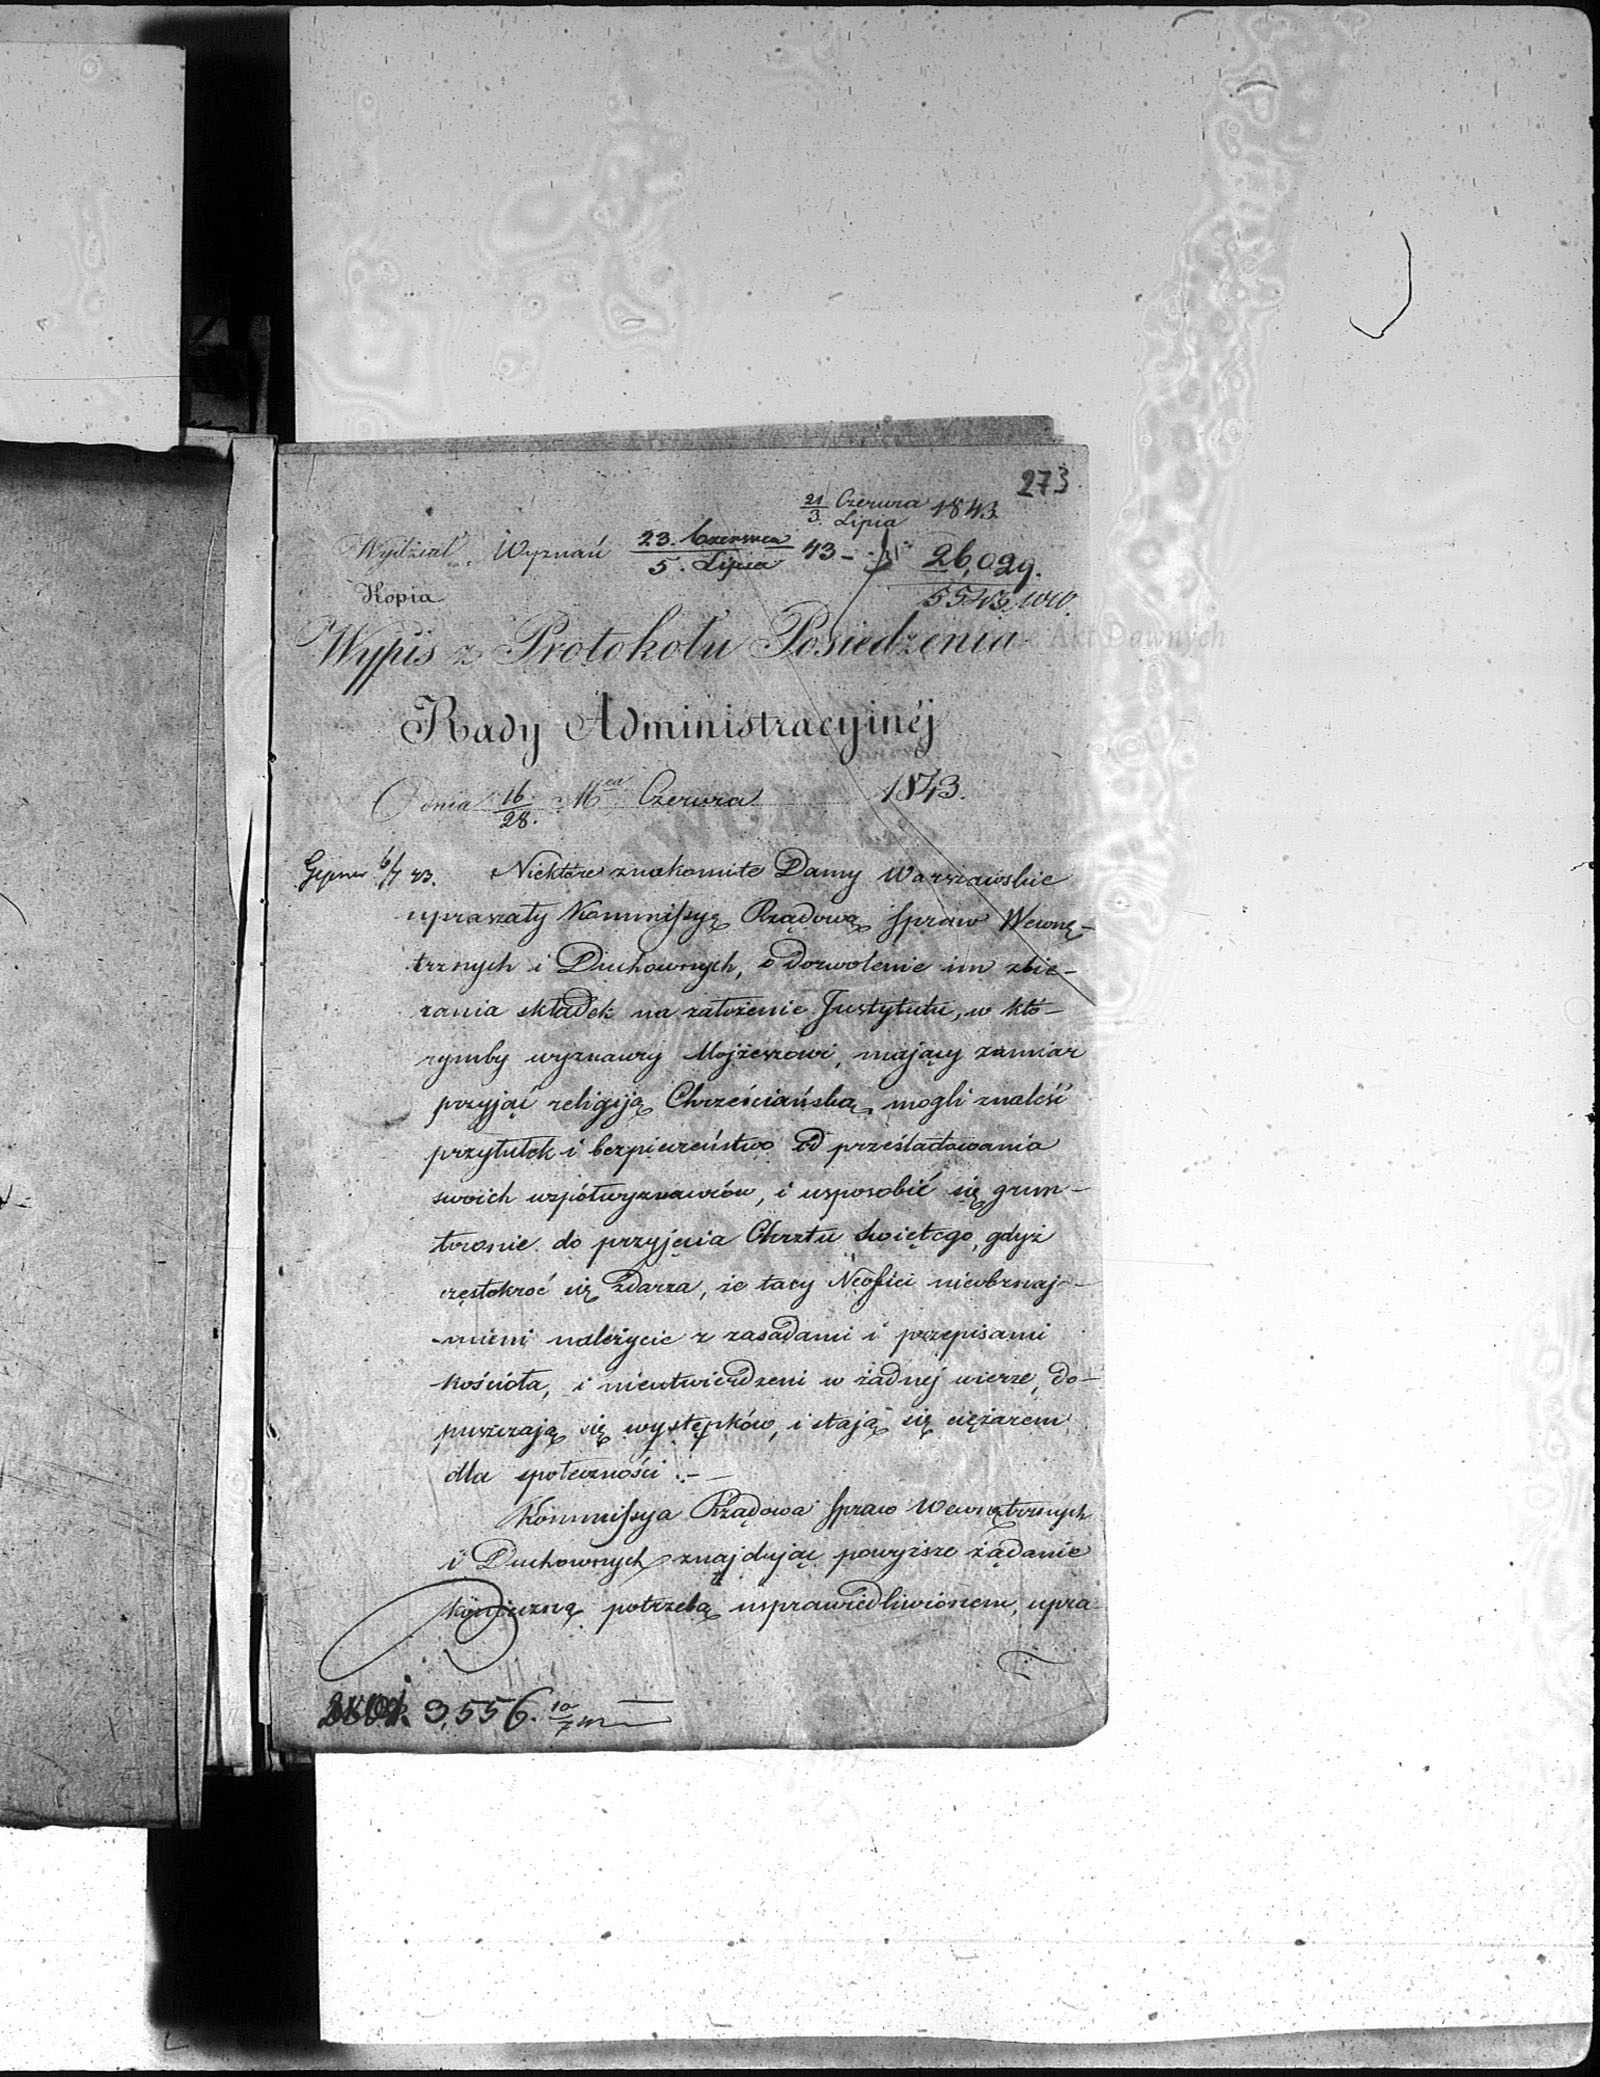 273
21/3. Czerwca/Lipia 1843
Wydział Wyznań 23. Czerwca/5. Lipca 43 – 26,029.
Kopia 5543 WW.
Wypis z Protokołu Posiedzenia
Rady Administracyinéj
Dnia 16/28. Mca Czerwca 1843.
6/7 43. Niektóre znakomite Damy Warszawskie
upraszały Kommissyę Rządową Spraw Wewnę-
trznych i Duchownych, o dozwolenie im zbie-
rania składek na założenie Instytutu, w któ-
rymby wyznawcy Mojżeszowi, mający zamiar
przyjąć religiją Chrześciańską mogli znaleść
przytułek i bezpieczeństwo od prześladowania
swoich współwyznawców, i usposobić się grun-
townie do przyjęcia Chrztu Świętego, gdyż
częstokroć się zdarza, że tacy Neofici nieobznaj-
-mieni należycie z zasadami i przepisami
kościoła, i nieutwierdzeni w żadnej wierze, do-
puszczają się występków, i stają się ciężarem
dla społeczności.–
Kommissya Rządowa Spraw Wewnętrznych
i Duchownych znajdując powyższe żądanie
konieczną potrzebą usprawiedliwionem, upra
3,556. 10/7
Akt Dawnych